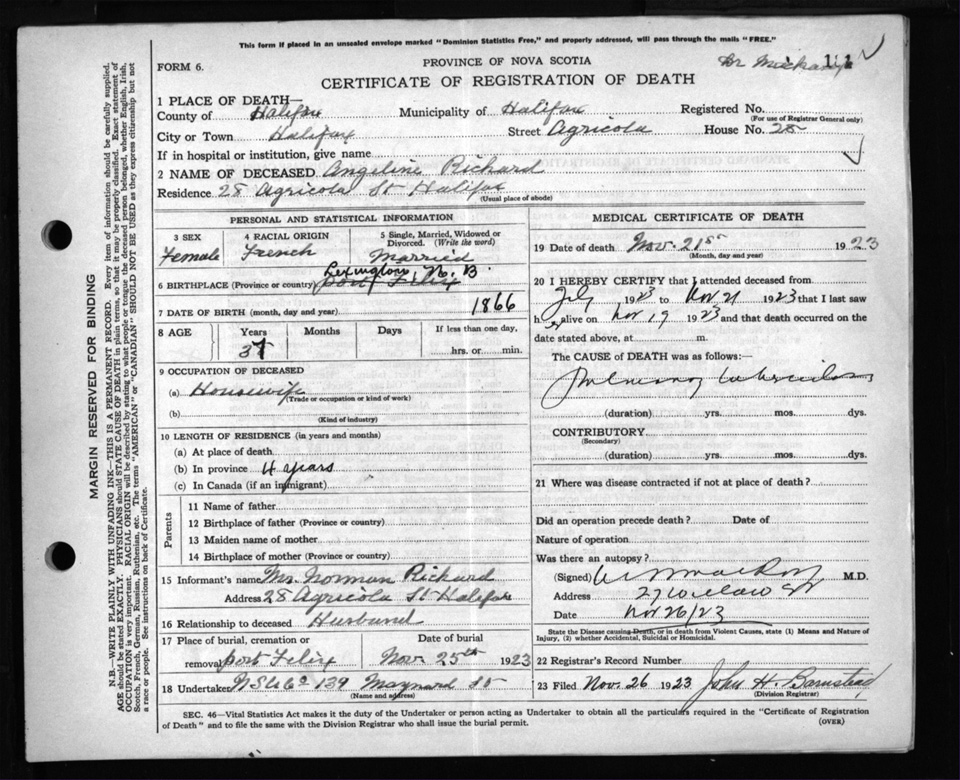 This form if placed in an unsealed envelope marked "Dominion Statistics Free," and properly addressed, will pass through the mails "FREE."
FORM 6.
PROVINCE OF NOVA SCOTIA
CERTIFICATE OF REGISTRATION OF DEATH
1 PLACE OF DEATH—
County of Halifax Municipality of Halifax Registered No.
(For use of Registrar General only)
City or Town Halifax Street Agricola House No. 28
If in hospital or institution, give name
2 NAME OF DECEASED Angeline Richard
Residence 28 Agricola St Halifax
(Usual place of abode)
PERSONAL AND STATISTICAL INFORMATION
3 SEX
Female
4 RACIAL ORIGIN
French
5 Single, Married, Widowed or Divorced. (Write the word)
Married
N. B.
6 BIRTHPLACE (Province or country) Port Felix
7 DATE OF BIRTH (month, day and year) 1866
8 AGE Years Months Days If less than one day,
37 hrs. or min.
9 OCCUPATION OF DECEASED
(a) Housewife
(Trade or occupation or kind of work)
(b)
(Kind of industry)
10 LENGTH OF RESIDENCE (in years and months)
(a) At place of death
(b) In province 4 years
(c) In Canada (if an immigrant)
Parents
11 Name of father
12 Birthplace of father (Province or country)
13 Maiden name of mother
14 Birthplace of mother (Province or country)
15 Informant's name Mr. Norman Richard
Address 28 Agricola St Halifax
16 Relationship to deceased Husband
17 Place of burial, cremation or removal Port Felix
Date of burial
Nov. 25th 1923
18 Undertaker 139 Maynard St
(Name and address)
MEDICAL CERTIFICATE OF DEATH
19 Date of death Nov. 21st 1923
(Month, day and year)
20 I HEREBY CERTIFY that I attended deceased from
July 1923 to Nov 21 1923 that I last saw
her alive on Nov 19 1923 and that death occurred on the
date stated above, at m.
The CAUSE of DEATH was as follows:
Pulmonary tuberculosis
(duration) yrs. mos. dys.
CONTRIBUTORY
(Secondary)
(duration) yrs. mos. dys.
21 Where was disease contracted if not at place of death?
Did an operation precede death? Date of
Nature of operation
Was there an autopsy?
(Signed) M.D.
Address 27 Willow St
Date Nov 26/23
State the Disease causing Death, or in death from Violent Causes, state (1) Means and Nature of
Injury, (2) whether Accidental, Suicidal or Homicidal.
22 Registrar's Record Number
23 Filed Nov. 26 1923 John H. Barnstead
(Division Registrar)
SEC. 46—Vital Statistics Act makes it the duty of the Undertaker or person acting as Undertaker to obtain all the particulars required in the "Certificate of Registration
of Death" and to file the same with the Division Registrar who shall issue the burial permit.
(OVER)
MARGIN RESERVED FOR BINDING
N.B.—WRITE PLAINLY WITH UNFADING INK—THIS IS A PERMANENT RECORD. Every item of information should be carefully supplied.
AGE should be stated EXACTLY. PHYSICIANS should STATE CAUSE OF DEATH in plain terms, so that it may be properly classified. Exact statement of
OCCUPATION is very important. RACIAL ORIGIN will be described by stating to what people or tongue the deceased person belonged, whether English, Irish,
Scotch, French, German, Russian, Ruthenian, etc. The terms "AMERICAN" or "CANADIAN" SHOULD NOT BE USED as they express citizenship but not
a race or people. See instructions on back of Certificate.